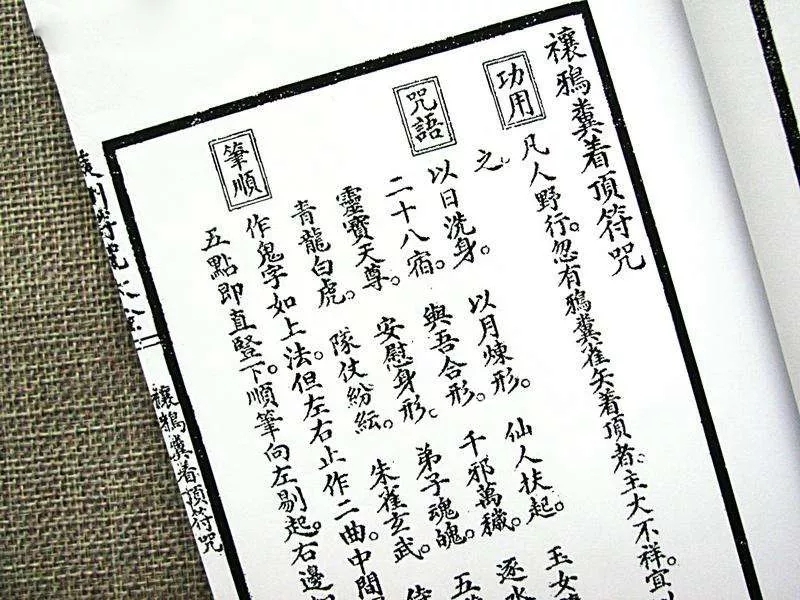 禳鴉糞着頂符咒
功用
凡人野行。忽有鴉糞雀矢着頂者。主大不祥宜
之
咒語
以日洗身。 以月煉形。 仙人扶起。 玉女
二十八宿。 與吾合形。 千邪萬穢。 逐水
靈寶天尊。 安慰身形。 弟子魂魄。 五
青龍白虎。 隊仗紛紜。 朱雀玄武。 侍
筆順
作鬼字如上法。但左右止作二曲。中間
五點即直豎下。順筆向左剔起。右邊
符咒大全
禳鴉糞着頂符咒